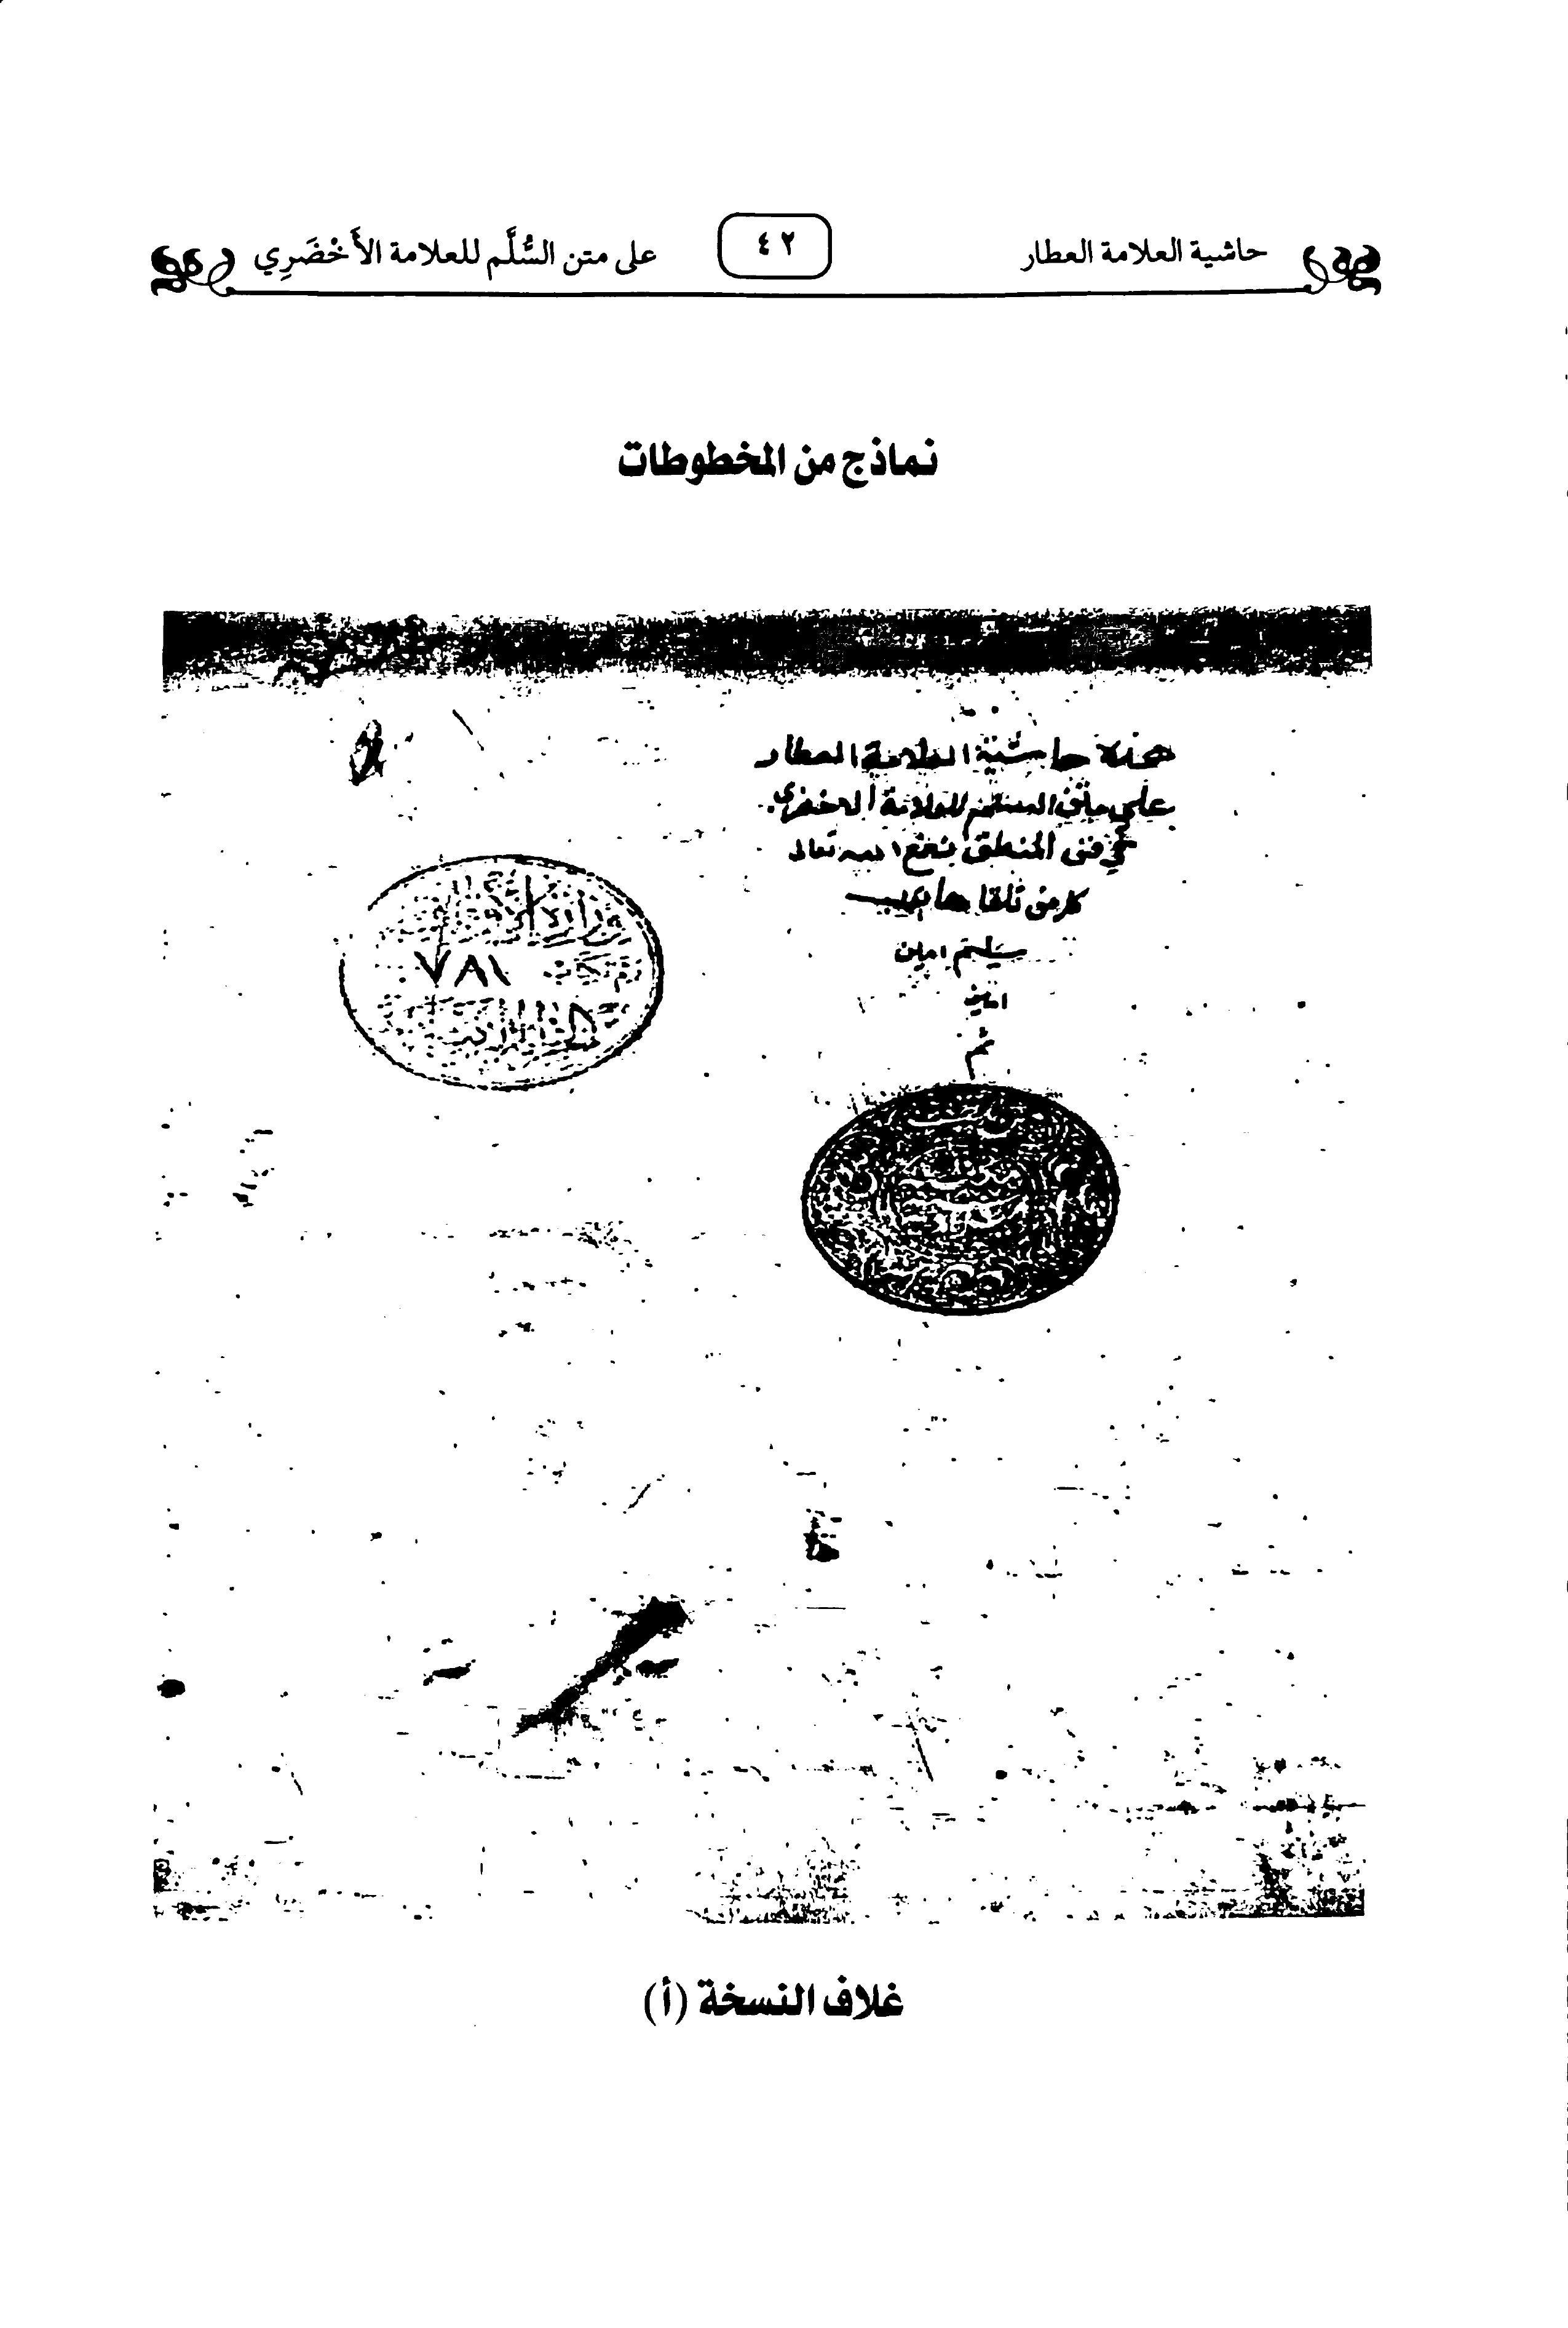 حاشية العلامة العطار
٤٢
على متن السُّلَّم للعلامة الأَخْضَرِي
نماذج من المخطوطات
هذه حاشية العلامة العطار
على متن السلم للعلامة الاخضري
في فن المنطق نفع الله تعالى
كل من تلقاها بقلب
سليم امين
امين
تم
٧٨١
غلاف النسخة (أ)